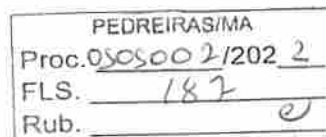 PEDREIRAS/MA
Proc. 0505002/2022
FLS. 187
Rub.